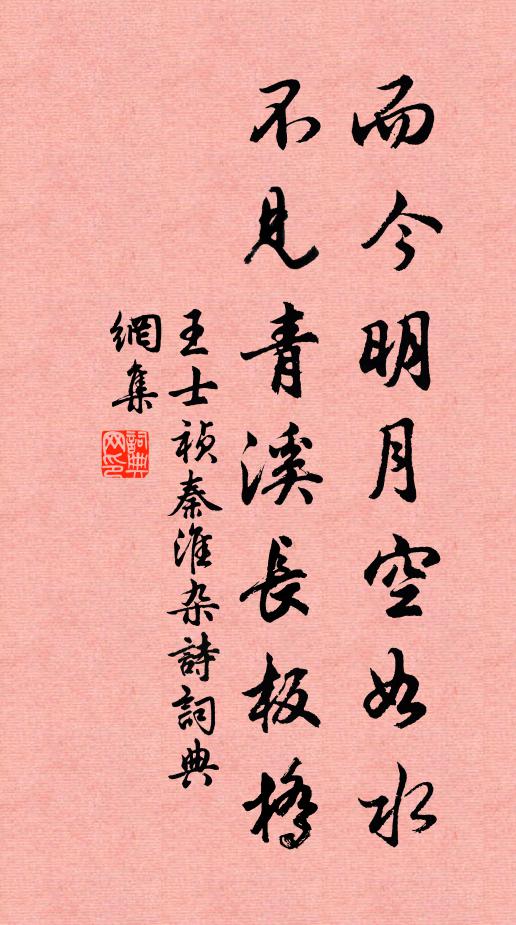 而今明月空如水
不見青溪長板橋
王士禎秦淮杂詩詞典
網集
詞典
网印